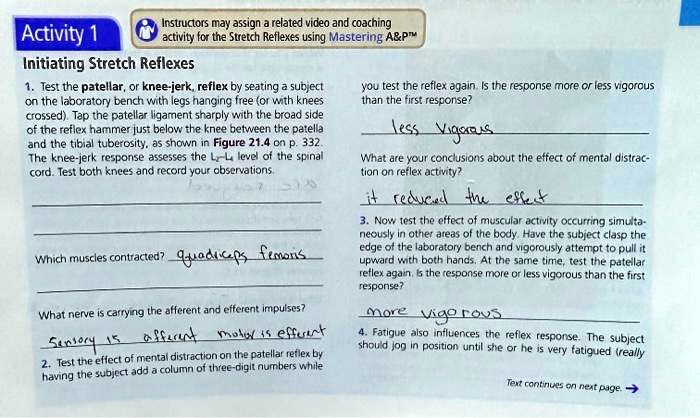 Activity 1
Instructors may assign a related video and coaching
activity for the Stretch Reflexes using Mastering A&P™
Initiating Stretch Reflexes
1. Test the patellar, or knee-jerk, reflex by seating a subject
on the laboratory bench with legs hanging free (or with knees
crossed). Tap the patellar ligament sharply with the broad side
of the reflex hammer just below the knee between the patella
and the tibial tuberosity, as shown in Figure 21.4 on p. 332.
The knee-jerk response assesses the L₂–L₄ level of the spinal
cord. Test both knees and record your observations.
Which muscles contracted? quadriceps femoris
What nerve is carrying the afferent and efferent impulses?
Sensory is afferent motor is efferent
2. Test the effect of mental distraction on the patellar reflex by
having the subject add a column of three-digit numbers while
you test the reflex again. Is the response more or less vigorous
than the first response?
less Vigorous
What are your conclusions about the effect of mental distrac-
tion on reflex activity?
it reduced the effect
3. Now test the effect of muscular activity occurring simulta-
neously in other areas of the body. Have the subject clasp the
edge of the laboratory bench and vigorously attempt to pull it
upward with both hands. At the same time, test the patellar
reflex again. Is the response more or less vigorous than the first
response?
more vigorous
4. Fatigue also influences the reflex response. The subject
should jog in position until she or he is very fatigued (really
Text continues on next page. →